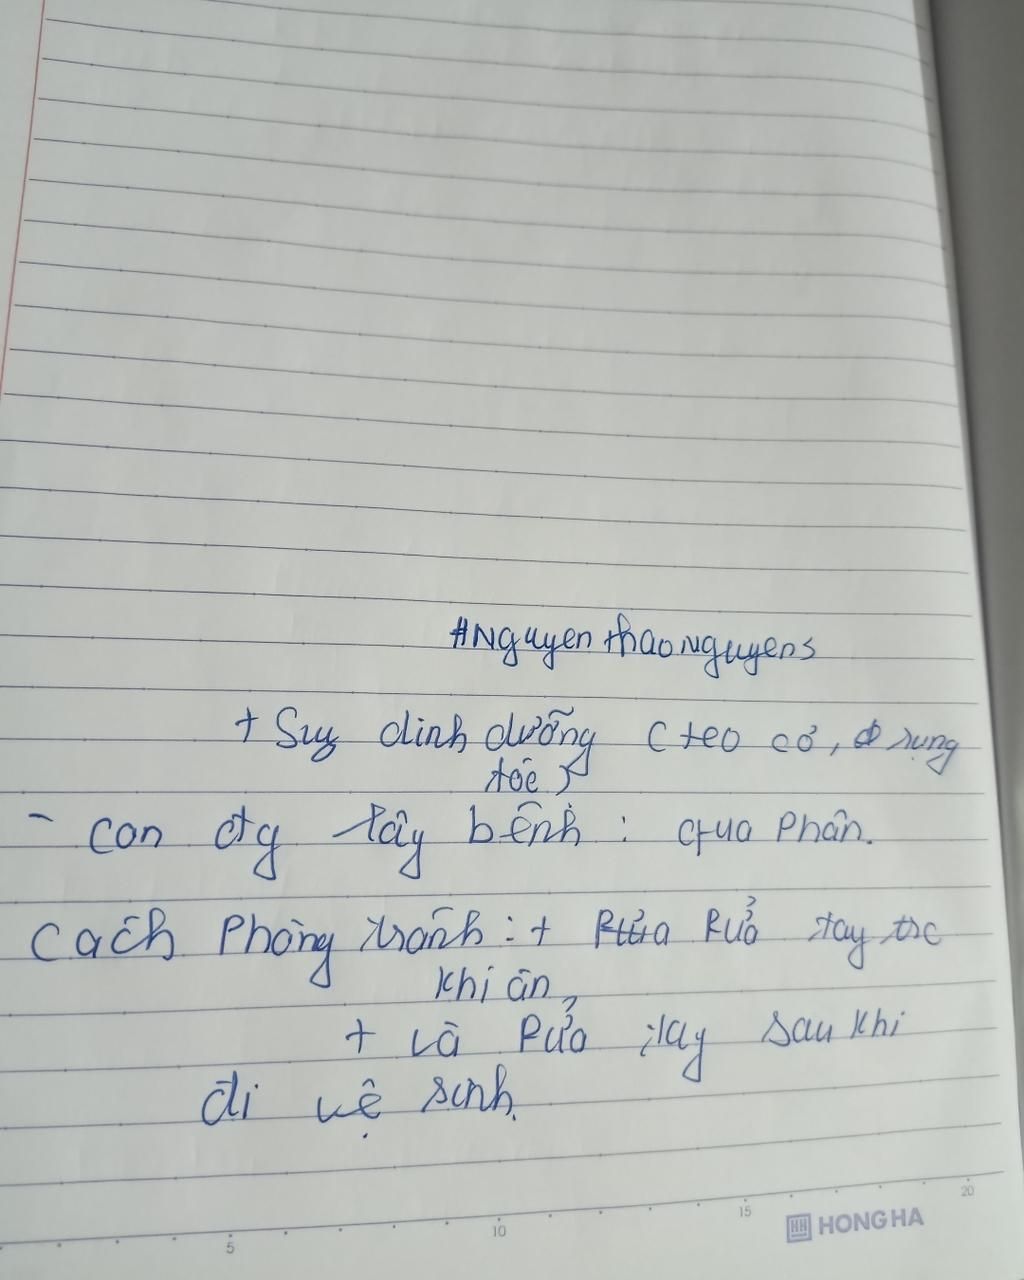 #Nguyen thao nguyens
+ Suy dinh dưỡng (teo cơ, rụng
tóc)
- Con đg lây bệnh : qua Phân.
Cách Phòng tránh : + Rửa Rửa tay trc
khi ăn,
+ và Rửa tay sau khi
đi vệ sinh.
5 10 15 20
HH HONG HA